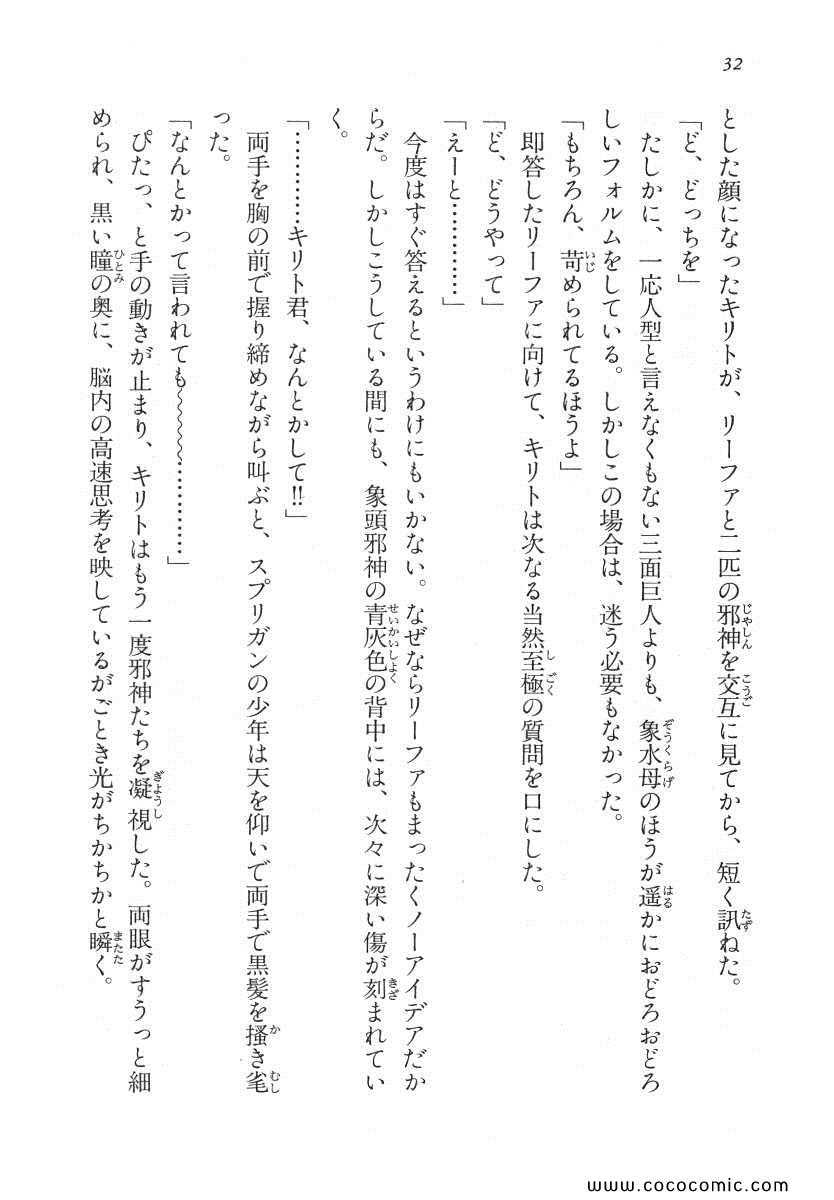 32
とした顔になったキリトが、リーファと二匹の邪神を交互に見てから、短く訊ねた。
「ど、どっちを」
たしかに、一応人型と言えなくもない三面巨人よりも、象水母のほうが遥かにおどろおどろ
しいフォルムをしている。しかしこの場合は、迷う必要もなかった。
「もちろん、苛められてるほうよ」
即答したリーファに向けて、キリトは次なる当然至極の質問を口にした。
「ど、どうやって」
「えーと…………」
今度はすぐ答えるというわけにもいかない。なぜならリーファもまったくノーアイデアだか
らだ。しかしこうしている間にも、象頭邪神の青灰色の背中には、次々に深い傷が刻まれてい
く。
「…………キリト君、なんとかして!!」
両手を胸の前で握り締めながら叫ぶと、スプリガンの少年は天を仰いで両手で黒髪を掻き毟
った。
「なんとかって言われても〜〜〜〜…………」
ぴたっ、と手の動きが止まり、キリトはもう一度邪神たちを凝視した。両眼がすうっと細
められ、黒い瞳の奥に、脳内の高速思考を映しているがごとき光がちかちかと瞬く。
www.cococomic.com